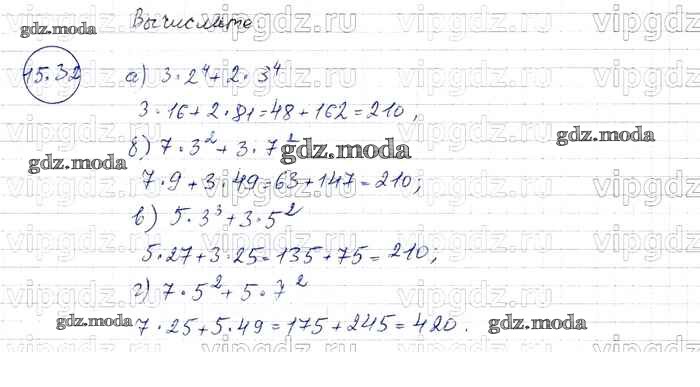 Вычислите
15.32
а) 3·2⁴+2·3⁴
3·16+2·81=48+162=210,
б) 7·3²+3·7²
7·9+3·49=63+147=210;
в) 5·3³+3·5²
5·27+3·25=135+75=210;
г) 7·5²+5·7²
7·25+5·49=175+245=420.
gdz.moda
gdz.moda
gdz.moda
gdz.moda
gdz.moda
gdz.moda
gdz.moda
vipgdz.ru